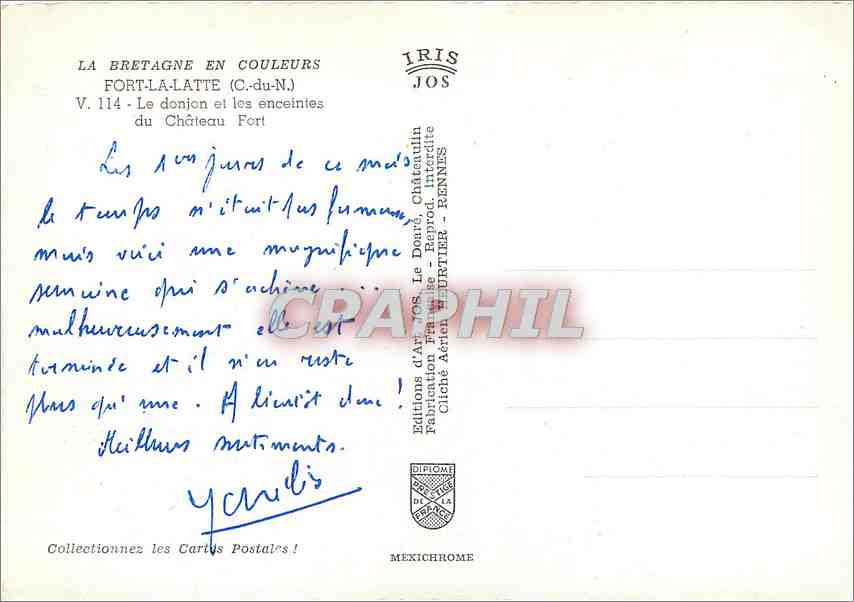 LA BRETAGNE EN COULEURS
FORT-LA-LATTE (C.-du-N.)
V. 114 - Le donjon et les enceintes
du Château Fort
Les 1ers jours de ce mois
le temps n'était pas fameux,
mais voici une magnifique
semaine qui s'achève ...
malheureusement elle est
terminée et il n'en reste
plus qu'une. A bientôt donc !
Meilleurs sentiments.
Collectionnez les Cartes Postales !
IRIS
JOS
Editions d'Art JOS, Le Doaré, Châteaulin
Fabrication Française - Reprod. interdite
Cliché Aérien HEURTIER - RENNES
CPAPHIL
DIPLOME
PRESTIGE
DE LA
FRANCE
MEXICHROME